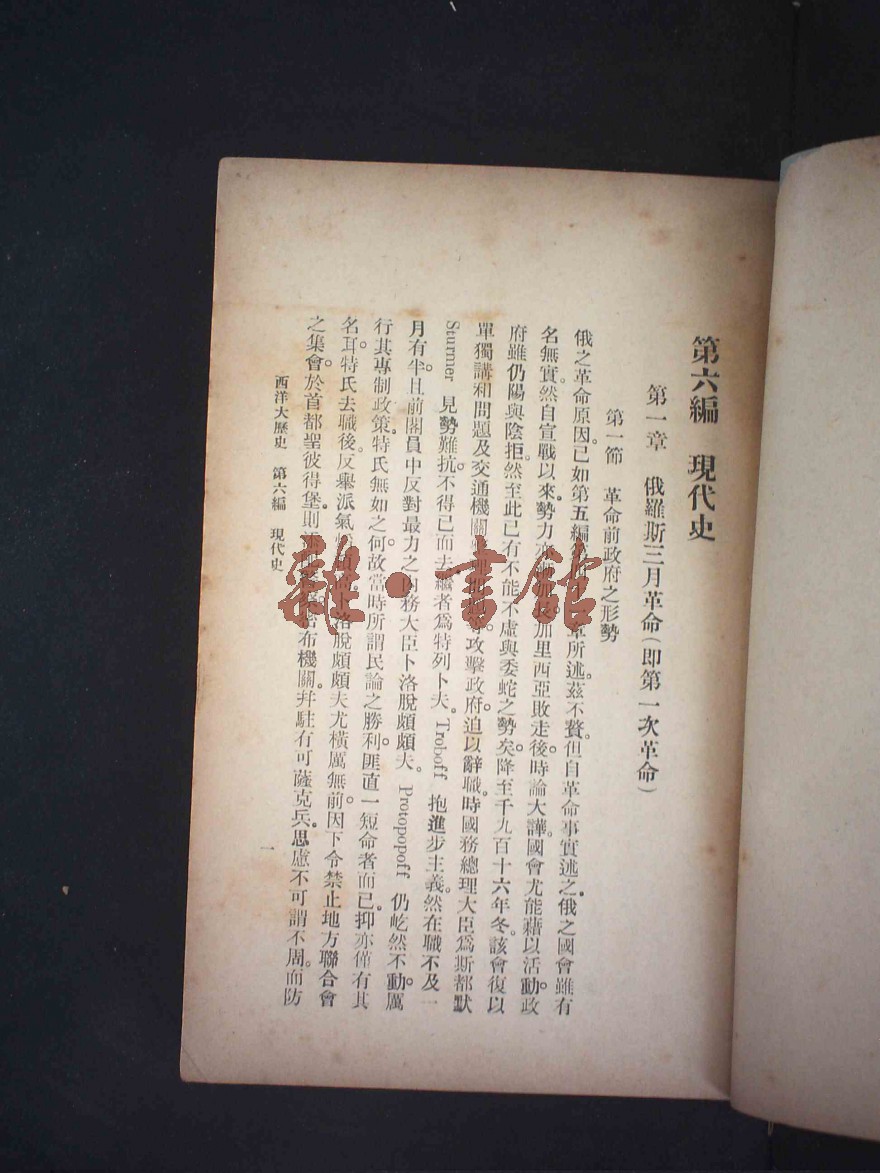 第六編 現代史
第一章 俄羅斯三月革命(即第一次革命)
第一節 革命前政府之形勢
俄之革命原因。已如第五編 章所述。茲不贅。但自革命事實述之。俄之國會雖有
名無實。然自宣戰以來。勢力亦 加里西亞敗走後。時論大譁。國會尤能藉以活動。政
府雖仍陽與陰拒。然至此已有不能不虛與委蛇之勢矣。降至千九百十六年冬。該會復以
單獨講和問題及交通機關 攻擊政府。迫以辭職。時國務總理大臣爲斯都默
Sturmer 見勢難抗。不得已而去。繼者爲特列卜夫。Treboff 抱進步主義。然在職不及一
月有半。且前閣員中反對最力之內務大臣卜洛脫頗頗夫。Protopopoff 仍屹然不動。厲
行其專制政策。特氏無如之何。故當時所謂民論之勝利。匪直一短命者而已。抑亦僅有其
名耳。特氏去職後。反舉派氣 洛脫頗頗夫尤橫厲無前。因下令禁止地方聯合會
之集會。於首都聖彼得堡。則 布機關。幷駐有可薩克兵。思慮不可謂不周。而防
西洋大歷史 第六編 現代史
一
雜·書館